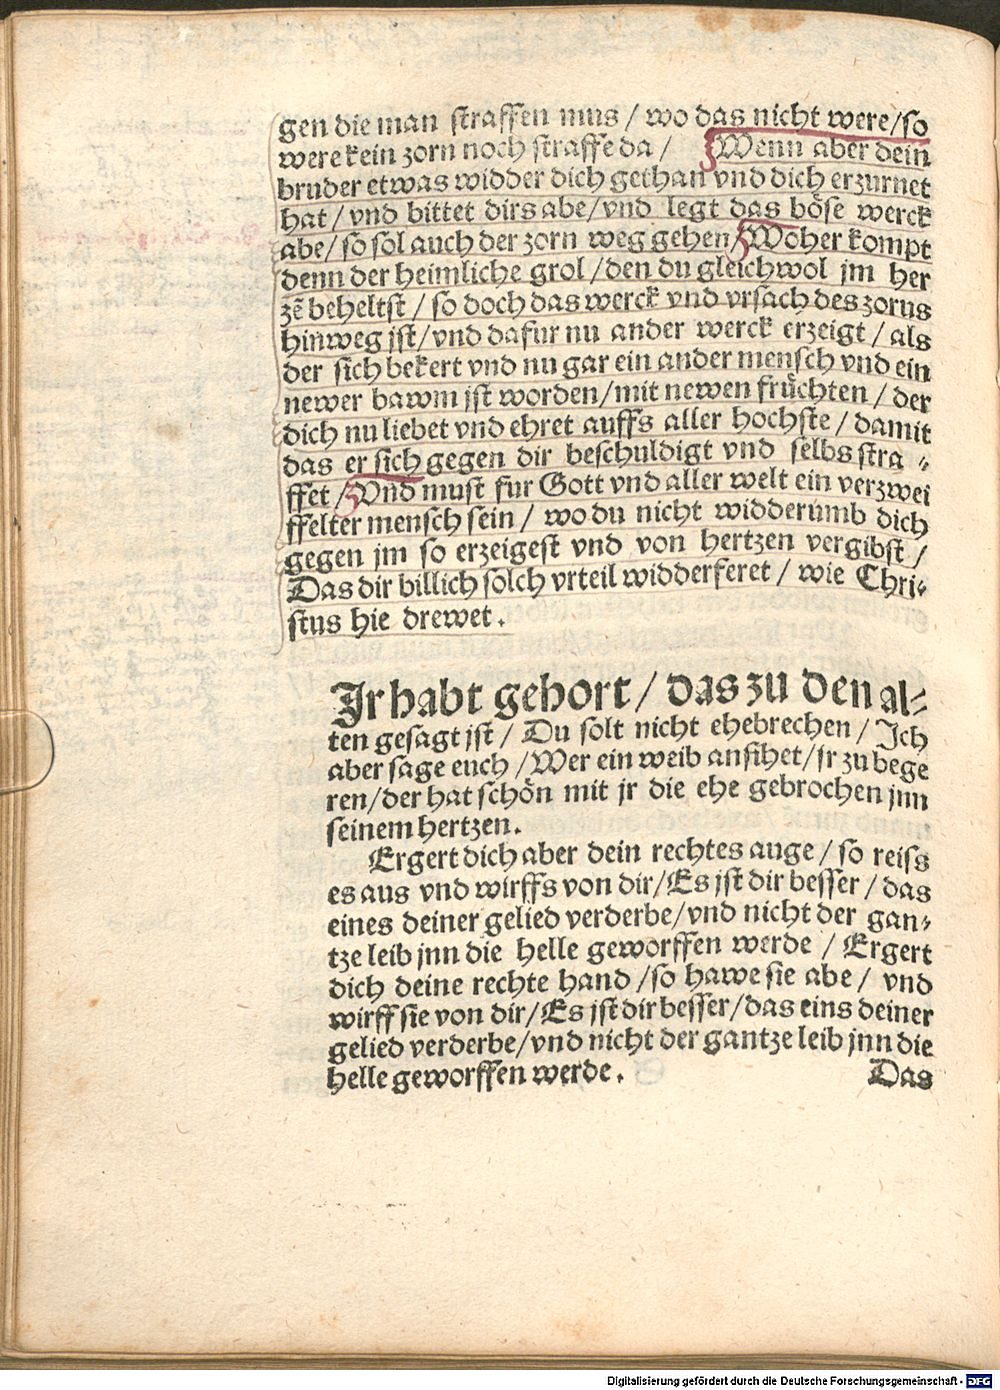 gen die man straffen mus / wo das nicht were/so
were kein zorn noch straffe da / Wenn aber dein
bruder etwas widder dich gethan vnd dich erzurnet
hat / vnd bittet dirs abe/vnd legt das böse werck
abe / so sol auch der zorn weg gehen/Woher kompt
denn der heimliche grol /den du gleichwol jm her
zē beheltst / so doch das werck vnd vrsach des zorns
hinweg jst/vnd dafur nu ander werck erzeigt / als
der sich bekert vnd nu gar ein ander mensch vnd ein
newer bawm jst worden/mit newen früchten / der
dich nu liebet vnd ehret auffs aller hochste / damit
das er sich gegen dir beschuldigt vnd selbs stra ⸗
ffet /Vnd must fur Gott vnd aller welt ein verzwei
ffelter mensch sein / wo du nicht widderumb dich
gegen jm so erzeigest vnd von hertzen vergibst /
Das dir billich solch vrteil widderferet / wie Chri⸗
stus hie drewet.
Jr habt gehort / das zu den al⸗
ten gesagt jst / Du solt nicht ehebrechen / Jch
aber sage euch /Wer ein weib ansihet/jr zu bege
ren/der hat schön mit jr die ehe gebrochen jnn
seinem hertzen.
Ergert dich aber dein rechtes auge / so reiss
es aus vnd wirffs von dir/Es jst dir besser / das
eines deiner gelied verderbe/vnd nicht der gan⸗
tze leib jnn die helle geworffen werde / Ergert
dich deine rechte hand /so hawe sie abe / vnd
wirff sie von dir/Es jst dir besser/das eins deiner
gelied verderbe/vnd nicht der gantze leib jnn die
helle geworffen werde. Das
Digitalisierung gefördert durch die Deutsche Forschungsgemeinschaft - DFG